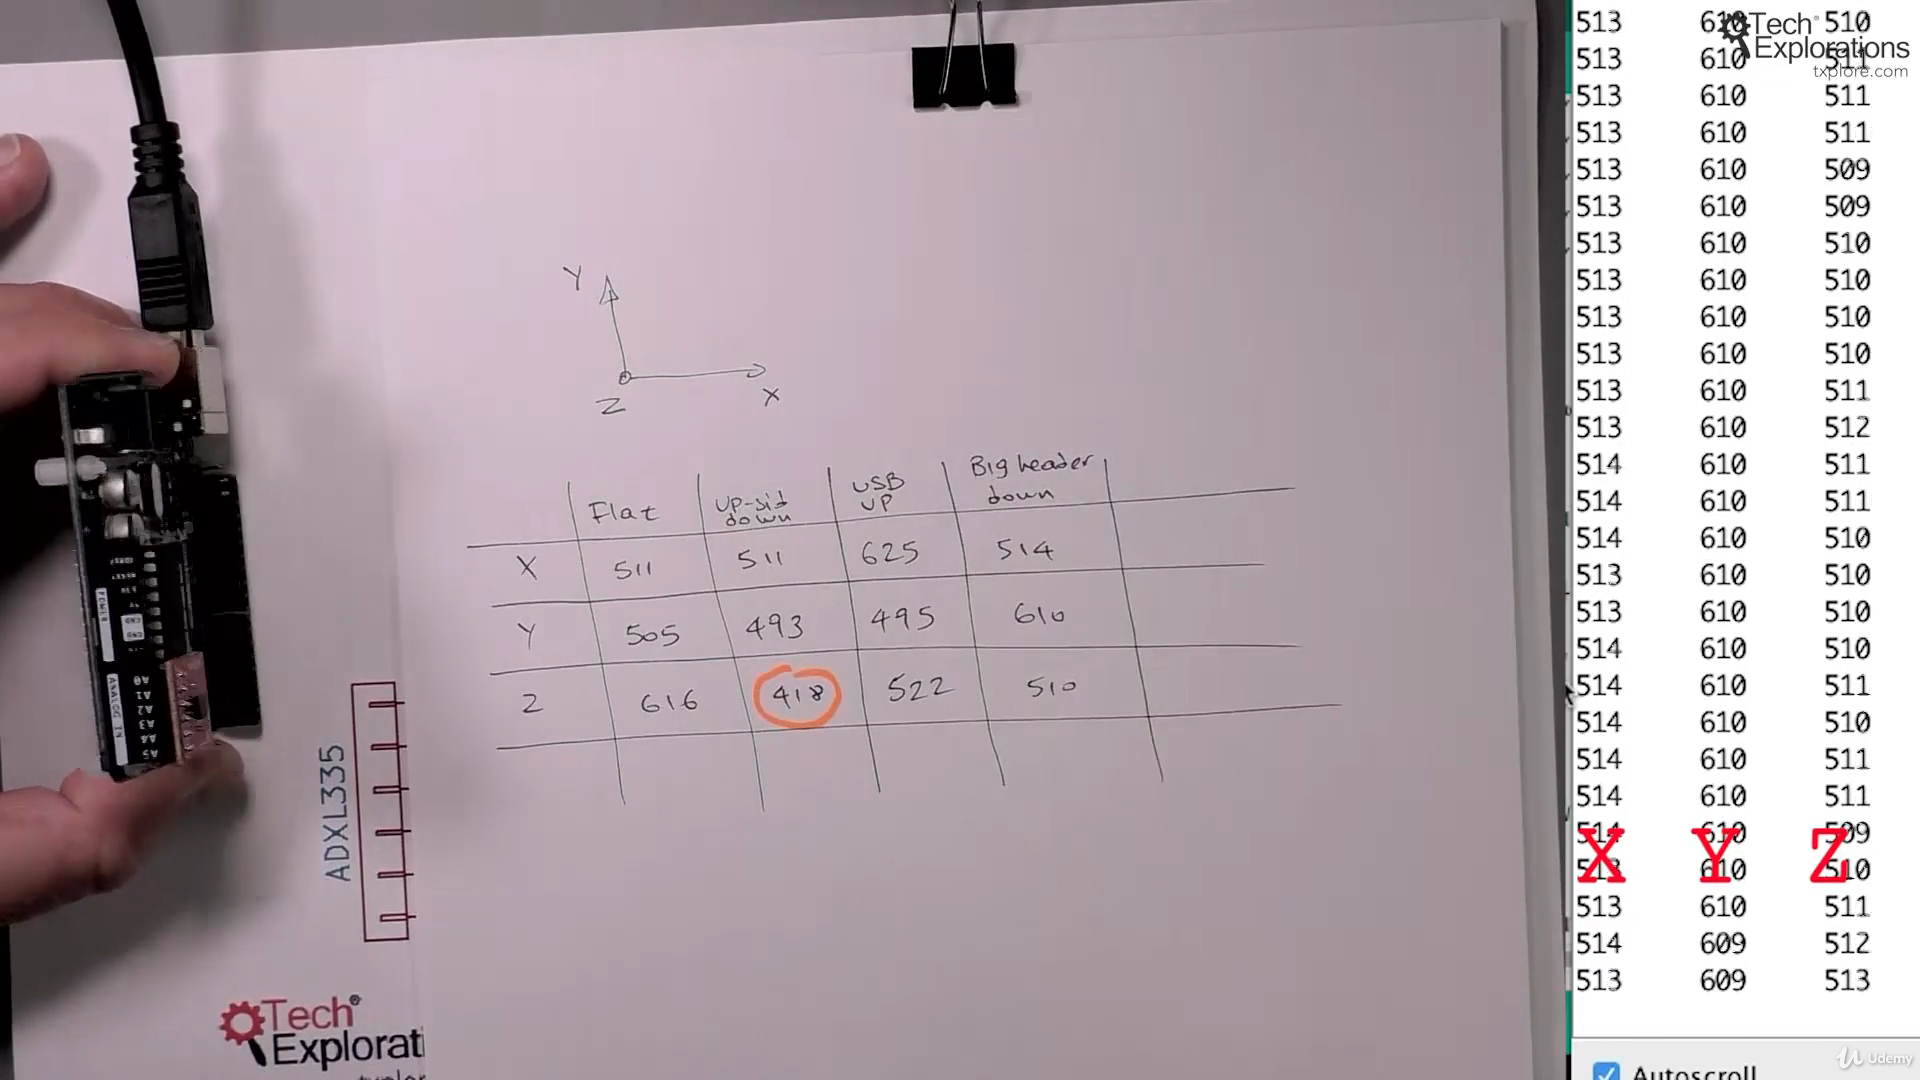 Y
Z
X
Flat
UP-sid down
USB UP
Big header down
X 511 511 625 514
Y 505 493 495 610
Z 616 418 522 510
POWER
ANALOG IN
A0
A1
A2
A3
A4
A5
ADXL335
Tech®
Explorati
513 610 510
513 610 511
513 610 511
513 610 511
513 610 509
513 610 509
513 610 510
513 610 510
513 610 510
513 610 510
513 610 511
513 610 512
514 610 511
514 610 511
514 610 510
513 610 510
513 610 510
514 610 510
514 610 511
514 610 510
514 610 511
514 610 511
514 610 509
513 610 510
X Y Z
513 610 511
514 609 512
513 609 513
Tech
Explorations
txplore.com
Autoscroll
Udemy